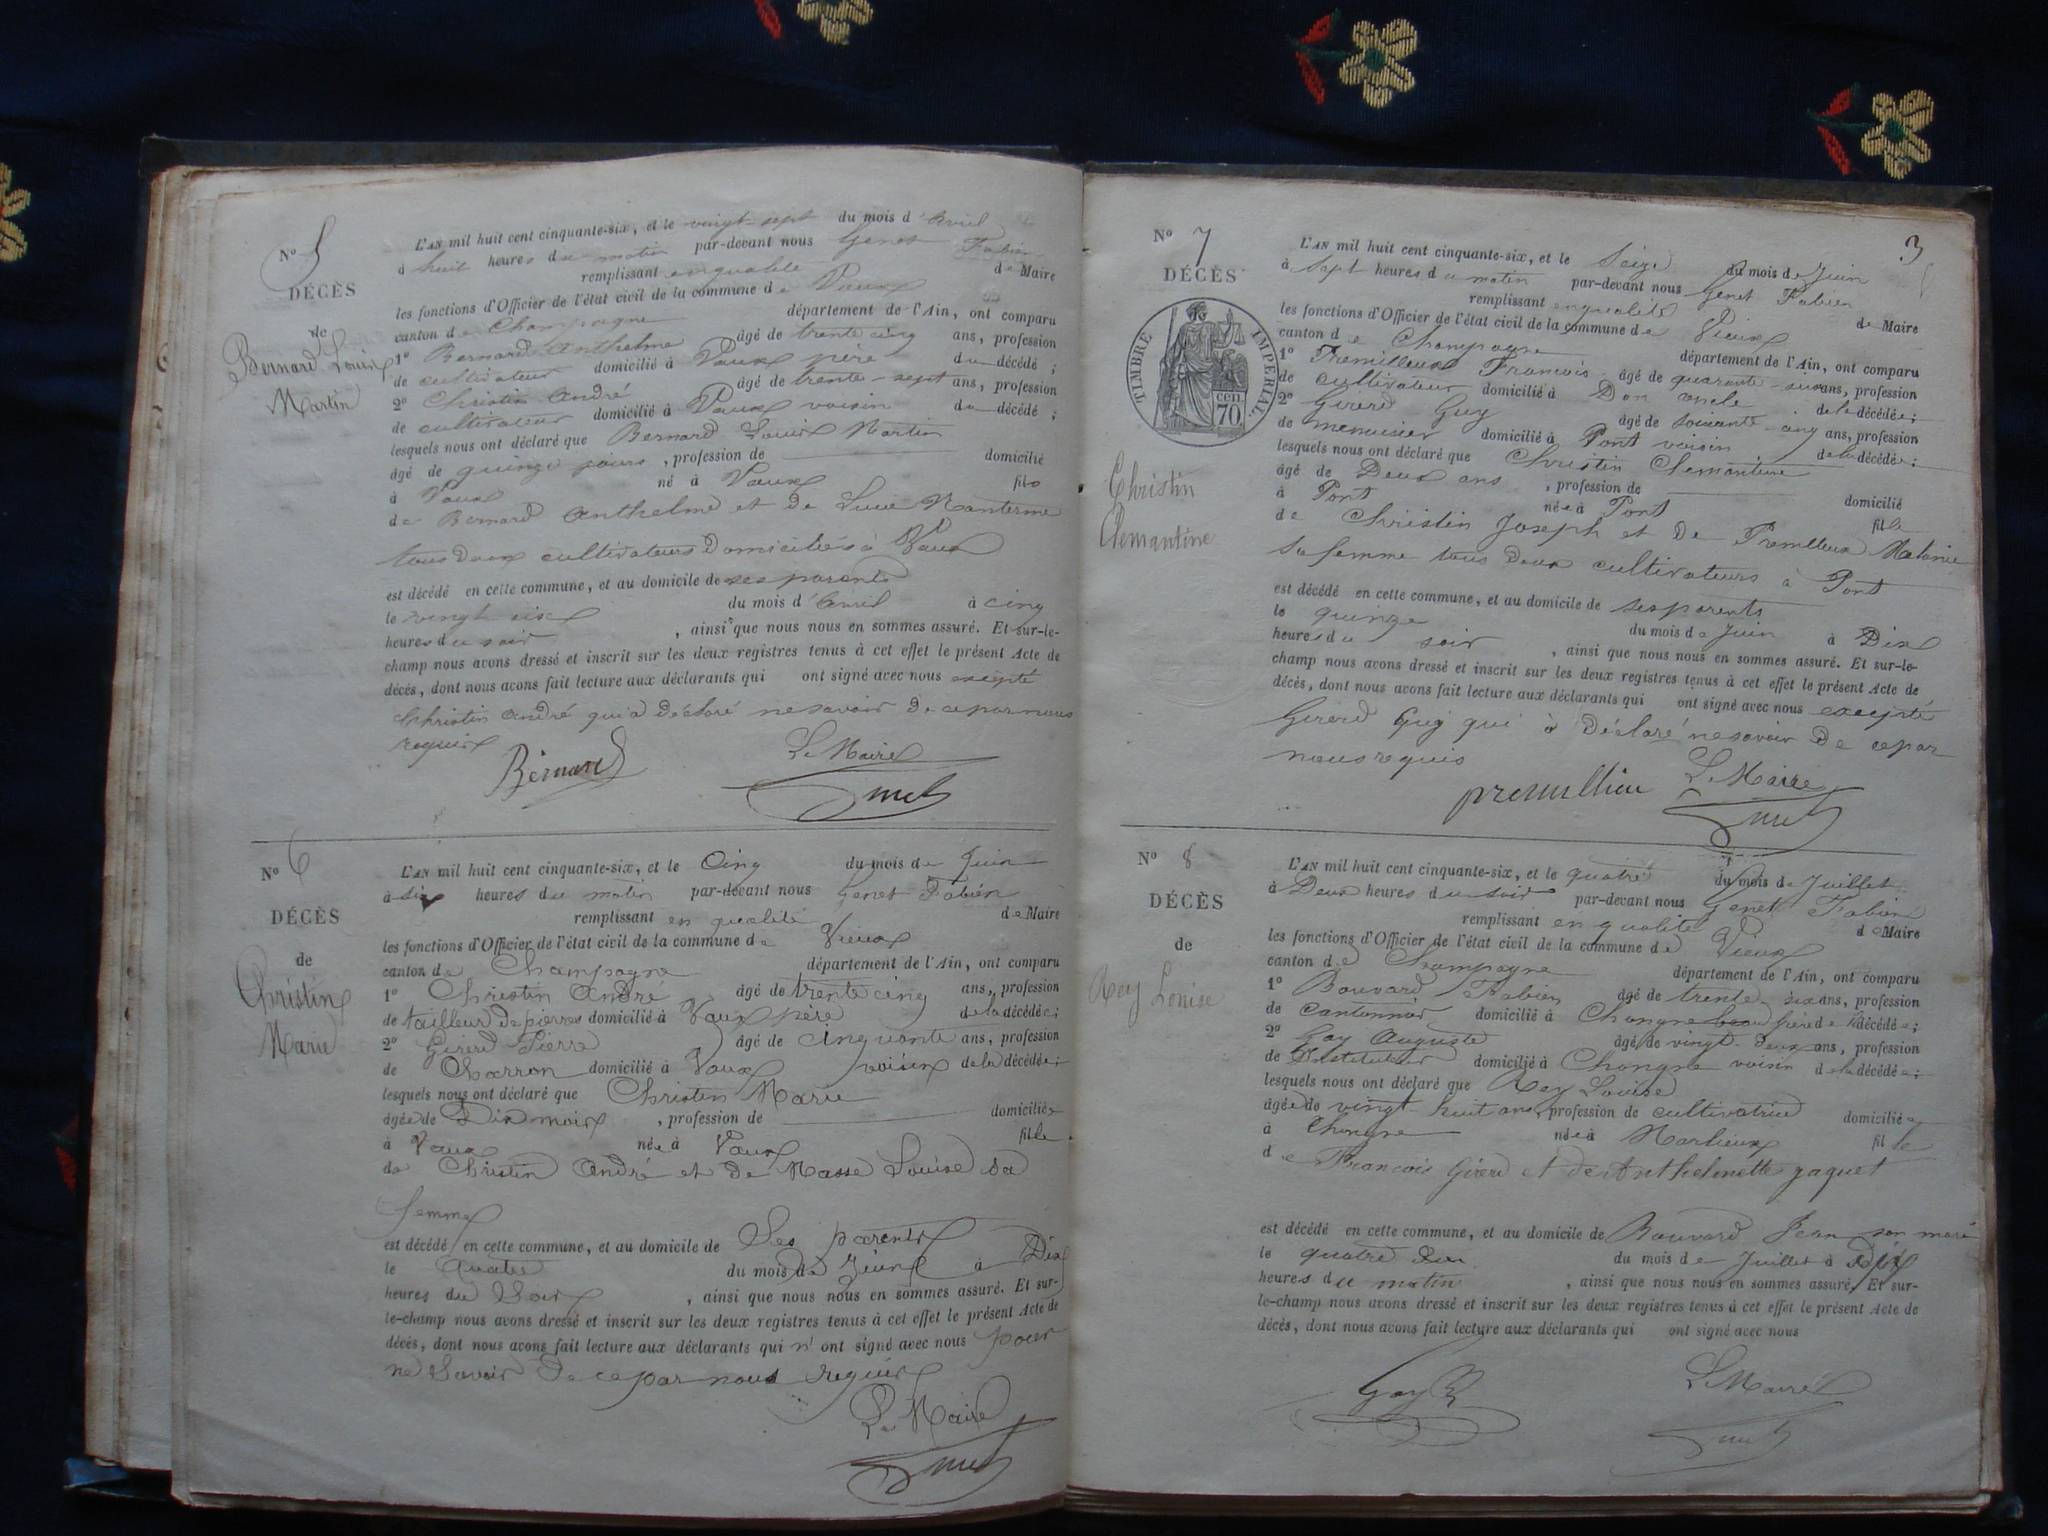 N° 5
DÉCÈS
de
Bernard Louis
Martin
L'AN mil huit cent cinquante-six, et le vingt-sept du mois d'Avril
à huit heures du matin par-devant nous Genet Fabien
remplissant en qualité de Maire
les fonctions d'Officier de l'état civil de la commune de Vieux
canton de Champagne département de l'Ain, ont comparu
1° Bernard Anthelme âgé de trente cinq ans, profession
de cultivateur domicilié à Vaux père du décédé ;
2° Christin André âgé de trente-sept ans, profession
de cultivateur domicilié à Vaux voisin du décédé ;
lesquels nous ont déclaré que Bernard Louis Martin
âgé de quinze jours , profession de domicilié
à Vaux né à Vaux fils
de Bernard Anthelme et de Lucie Nanterme
tous deux cultivateurs domiciliés à Vaux
est décédé en cette commune, et au domicile de ses parents
le vingt six du mois d'Avril à cinq
heures du soir , ainsi que nous nous en sommes assuré. Et sur-le-
champ nous avons dressé et inscrit sur les deux registres tenus à cet effet le présent Acte de
décès, dont nous avons fait lecture aux déclarants qui ont signé avec nous excepté
Christin André qui a déclaré ne savoir de ce par nous
requis
Bernard Le Maire
N° 6
DÉCÈS
de
Christin
Marie
L'AN mil huit cent cinquante-six, et le Cinq du mois de Juin
à six heures du matin par-devant nous Genet Fabien
remplissant en qualité de Maire
les fonctions d'Officier de l'état civil de la commune de Vieux
canton de Champagne département de l'Ain, ont comparu
1° Christin André âgé de trente cinq ans, profession
de tailleur de pierres domicilié à Vaux père de la décédée ;
2° Girerd Pierre âgé de cinquante ans, profession
de Charron domicilié à Vaux voisin de la décédée ;
lesquels nous ont déclaré que Christin Marie
âgée de Dix mois , profession de domiciliée
à Vaux née à Vaux fille
de Christin André et de Masse Louise sa
femme
est décédé en cette commune, et au domicile de Ses parents
le Quatre du mois de Juin à Dix
heures du Soir , ainsi que nous nous en sommes assuré. Et sur-
le-champ nous avons dressé et inscrit sur les deux registres tenus à cet effet le présent Acte de
décès, dont nous avons fait lecture aux déclarants qui n'ont signé avec nous pour
ne Savoir de ce par nous requis
Le Maire
3
N° 7
DÉCÈS
TIMBRE IMPERIAL
70 cen.
Christin
Clemantine
L'AN mil huit cent cinquante-six, et le Seize du mois de Juin
à Sept heures du matin par-devant nous Genet Fabien
remplissant en qualité de Maire
les fonctions d'Officier de l'état civil de la commune de Vieux
canton de Champagne département de l'Ain, ont comparu
1° Premillieux Francois âgé de quarante-six ans, profession
de cultivateur domicilié à Don oncle de la décédée ;
2° Girerd Guy âgé de soixante-cinq ans, profession
de menuisier domicilié à Pont voisin de la décédée ;
lesquels nous ont déclaré que Christin Clemantine
âgé de Deux ans , profession de domicilié
à Pont née à Pont fille
de Christin Joseph et de Premillieux Melanie
sa femme tous deux cultivateurs à Pont
est décédé en cette commune, et au domicile de ses parents
le quinze du mois de Juin à Dix
heures du soir , ainsi que nous nous en sommes assuré. Et sur-le-
champ nous avons dressé et inscrit sur les deux registres tenus à cet effet le présent Acte de
décès, dont nous avons fait lecture aux déclarants qui ont signé avec nous excepté
Girerd Guy qui a déclaré ne savoir de ce par
nous requis
premillieu Le Maire
N° 8
DÉCÈS
de
Rey Louise
L'AN mil huit cent cinquante-six, et le quatre du mois de Juillet
à Deux heures du soir par-devant nous Genet Fabien
remplissant en qualité de Maire
les fonctions d'Officier de l'état civil de la commune de Vieux
canton de Champagne département de l'Ain, ont comparu
1° Bouvard Fabien âgé de trente-six ans, profession
de cantonnier domicilié à Chongne beau frère de la décédée ;
2° Gay Auguste âgé de vingt-deux ans, profession
de Instituteur domicilié à Chongne voisin de la décédée ;
lesquels nous ont déclaré que Rey Louise
âgée de vingt-huit ans, profession de cultivatrice domiciliée
à Chongne née à Marlieux fille
de Francois Girerd et de Anthelmette jaquet
est décédé en cette commune, et au domicile de Bouvard Jean son mari
le quatre du mois de Juillet à Dix
heures du matin , ainsi que nous nous en sommes assuré. Et sur-
le-champ nous avons dressé et inscrit sur les deux registres tenus à cet effet le présent Acte de
décès, dont nous avons fait lecture aux déclarants qui ont signé avec nous
Gay Le Maire